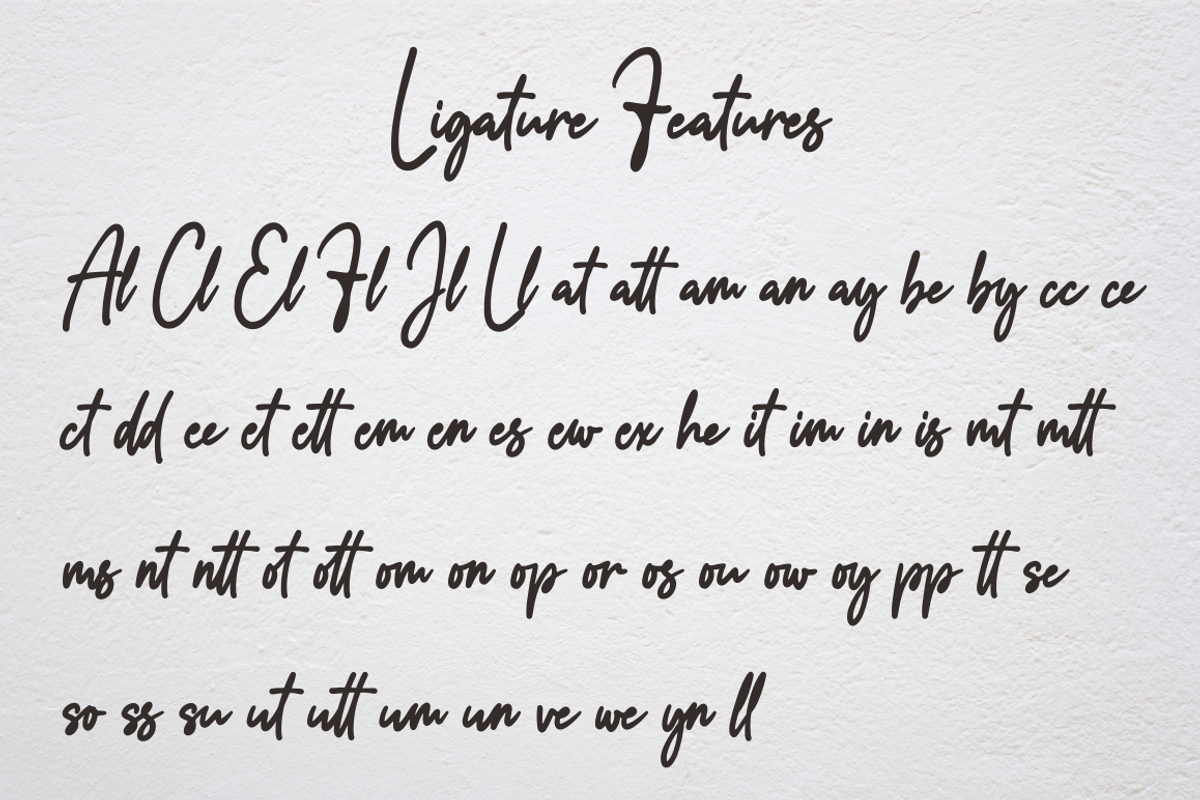 Ligature Features
Al Cl El Fl Jl Ll at att am an ay be by cc ce
ct dd ee et ett em en es ew ex he it im in is mt mtt
ms nt ntt ot ott om on op or os ou ow oy pp tt se
so ss su ut utt um un ve we yn ll